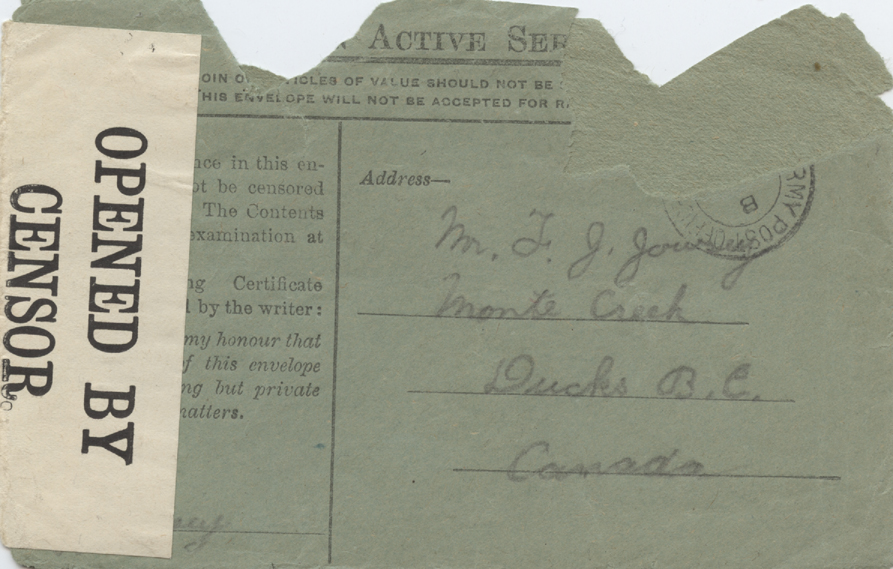 ACTIVE SER
OIN O ICLES OF VALUE SHOULD NOT BE
HIS ENVELOPE WILL NOT BE ACCEPTED FOR R
OPENED BY
CENSOR.
nce in this en-
ot be censored
The Contents
examination at
ng Certificate
l by the writer:
my honour that
f this envelope
ng but private
atters.
Address—
Mr. F. J.
Monte Creek
Ducks B.C.
Canada
RMY POST OFFI
8